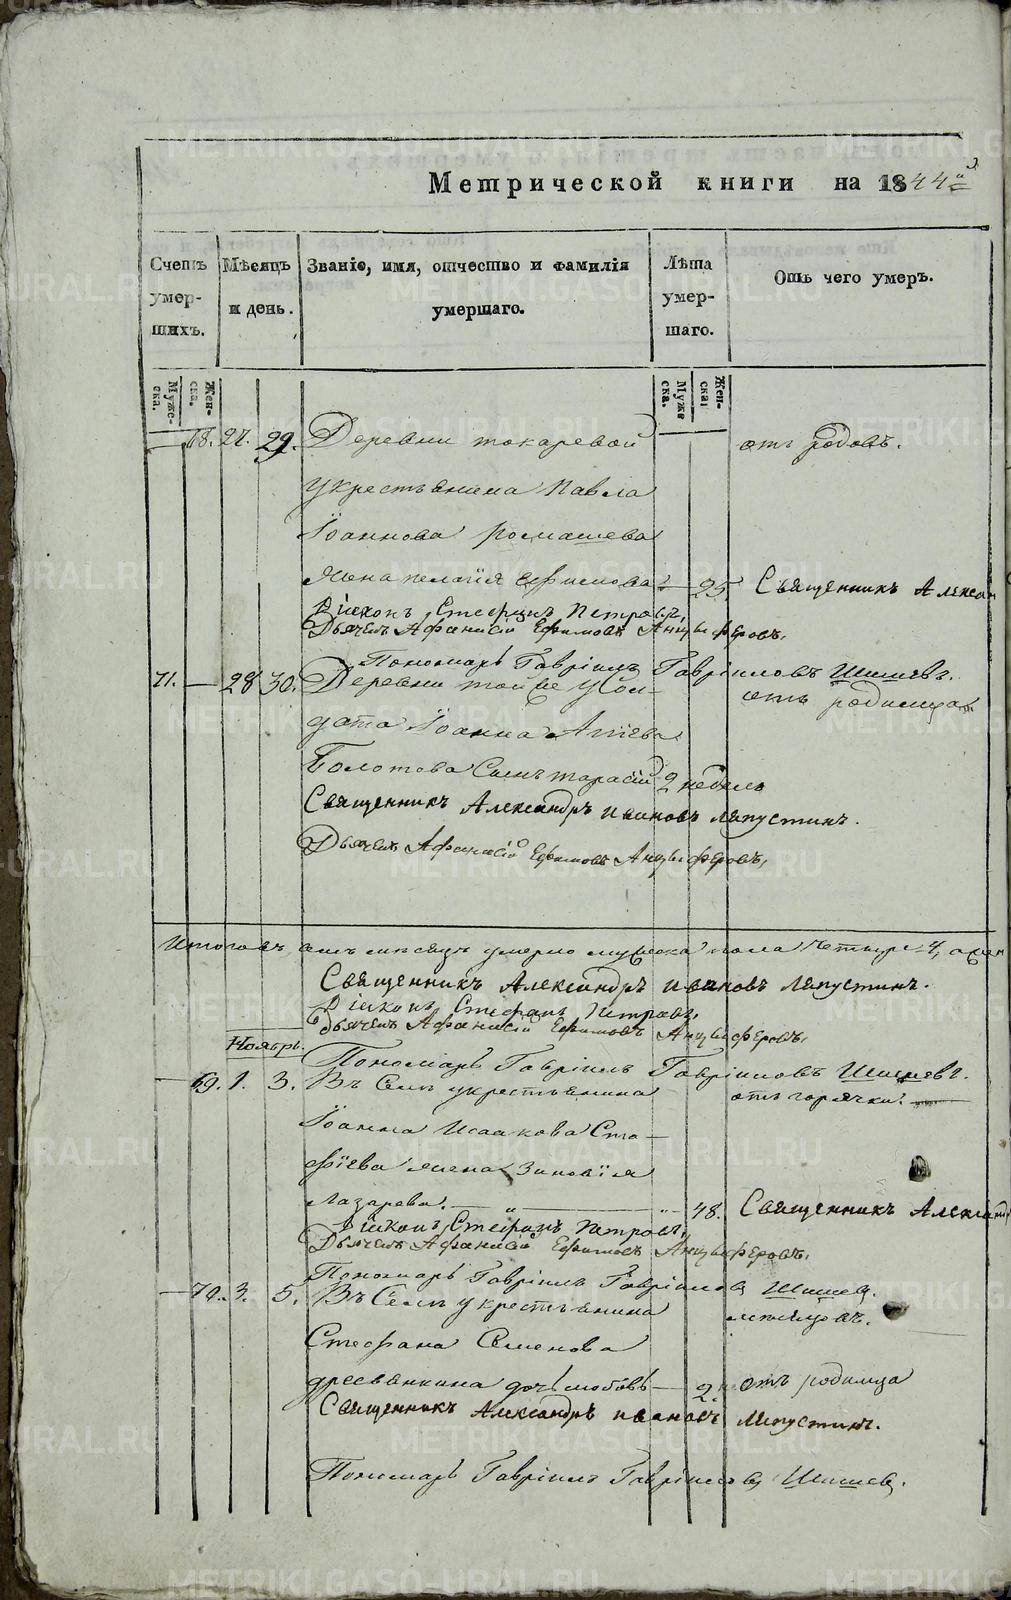 Метрической книги на 1844й
Счетъ умер- шихъ.
Мѣсяцъ и день.
Званіе, имя, отчество и фамилія умершаго.
Лѣта умер- шаго.
Отъ чего умеръ.
Муже- ска.
Жен- ска.
Муже ска.
Жен- ска.
— 68. 27. 29. Деревни токаревой отъ родовъ.
у крестьянина Павла
Іоаннова ромашева
жена пелагія Ефимова — 25 Священникъ Алексан
Діаконъ Стефанъ Петровъ,
Дьячекъ Афанасій Ефимовъ Анцыферовъ.
Пономарь Гавріилъ Гавріиловъ Шишевъ.
71. — 28 30. Деревни той же у Сол- отъ родимца
дата Іоанна
Болотова Сынъ тарасій 2 недель
Священникъ Александръ Ивановъ Ляпустинъ.
Дьячекъ Афанасій Ефимовъ Анцыферовъ.
Итого въ семъ месяце умерло мужеска пола четыре 4, а жен
Священникъ Александръ Ивановъ Ляпустинъ.
Діаконъ Стефанъ Петровъ,
Дьячекъ Афанасій Ефимовъ Анцыферовъ.
Ноябрь.
Пономарь Гавріилъ Гавріиловъ Шишевъ.
— 69. 1. 3. Въ Селе у крестьянина отъ горячки.
Іоанна Исаакова Ста-
фіева жена Зиновія
Лазарева. — „ — „ 48. Священникъ Александ
Діаконъ Стефанъ Петровъ,
Дьячекъ Афанасій Ефимовъ Анцыферовъ.
Пономарь Гавріилъ Гавріиловъ Шишевъ.
— 70. 3. 5. Въ Селе у крестьянина
Стефана Семенова месяцовъ.
дресвянкина дочь любовь — 2 отъ родимца
Священникъ Александръ Ивановъ Ляпустинъ.
Пономарь Гавріилъ Гавріиловъ Шишевъ.
METRIKI.GASO-URAL.RU